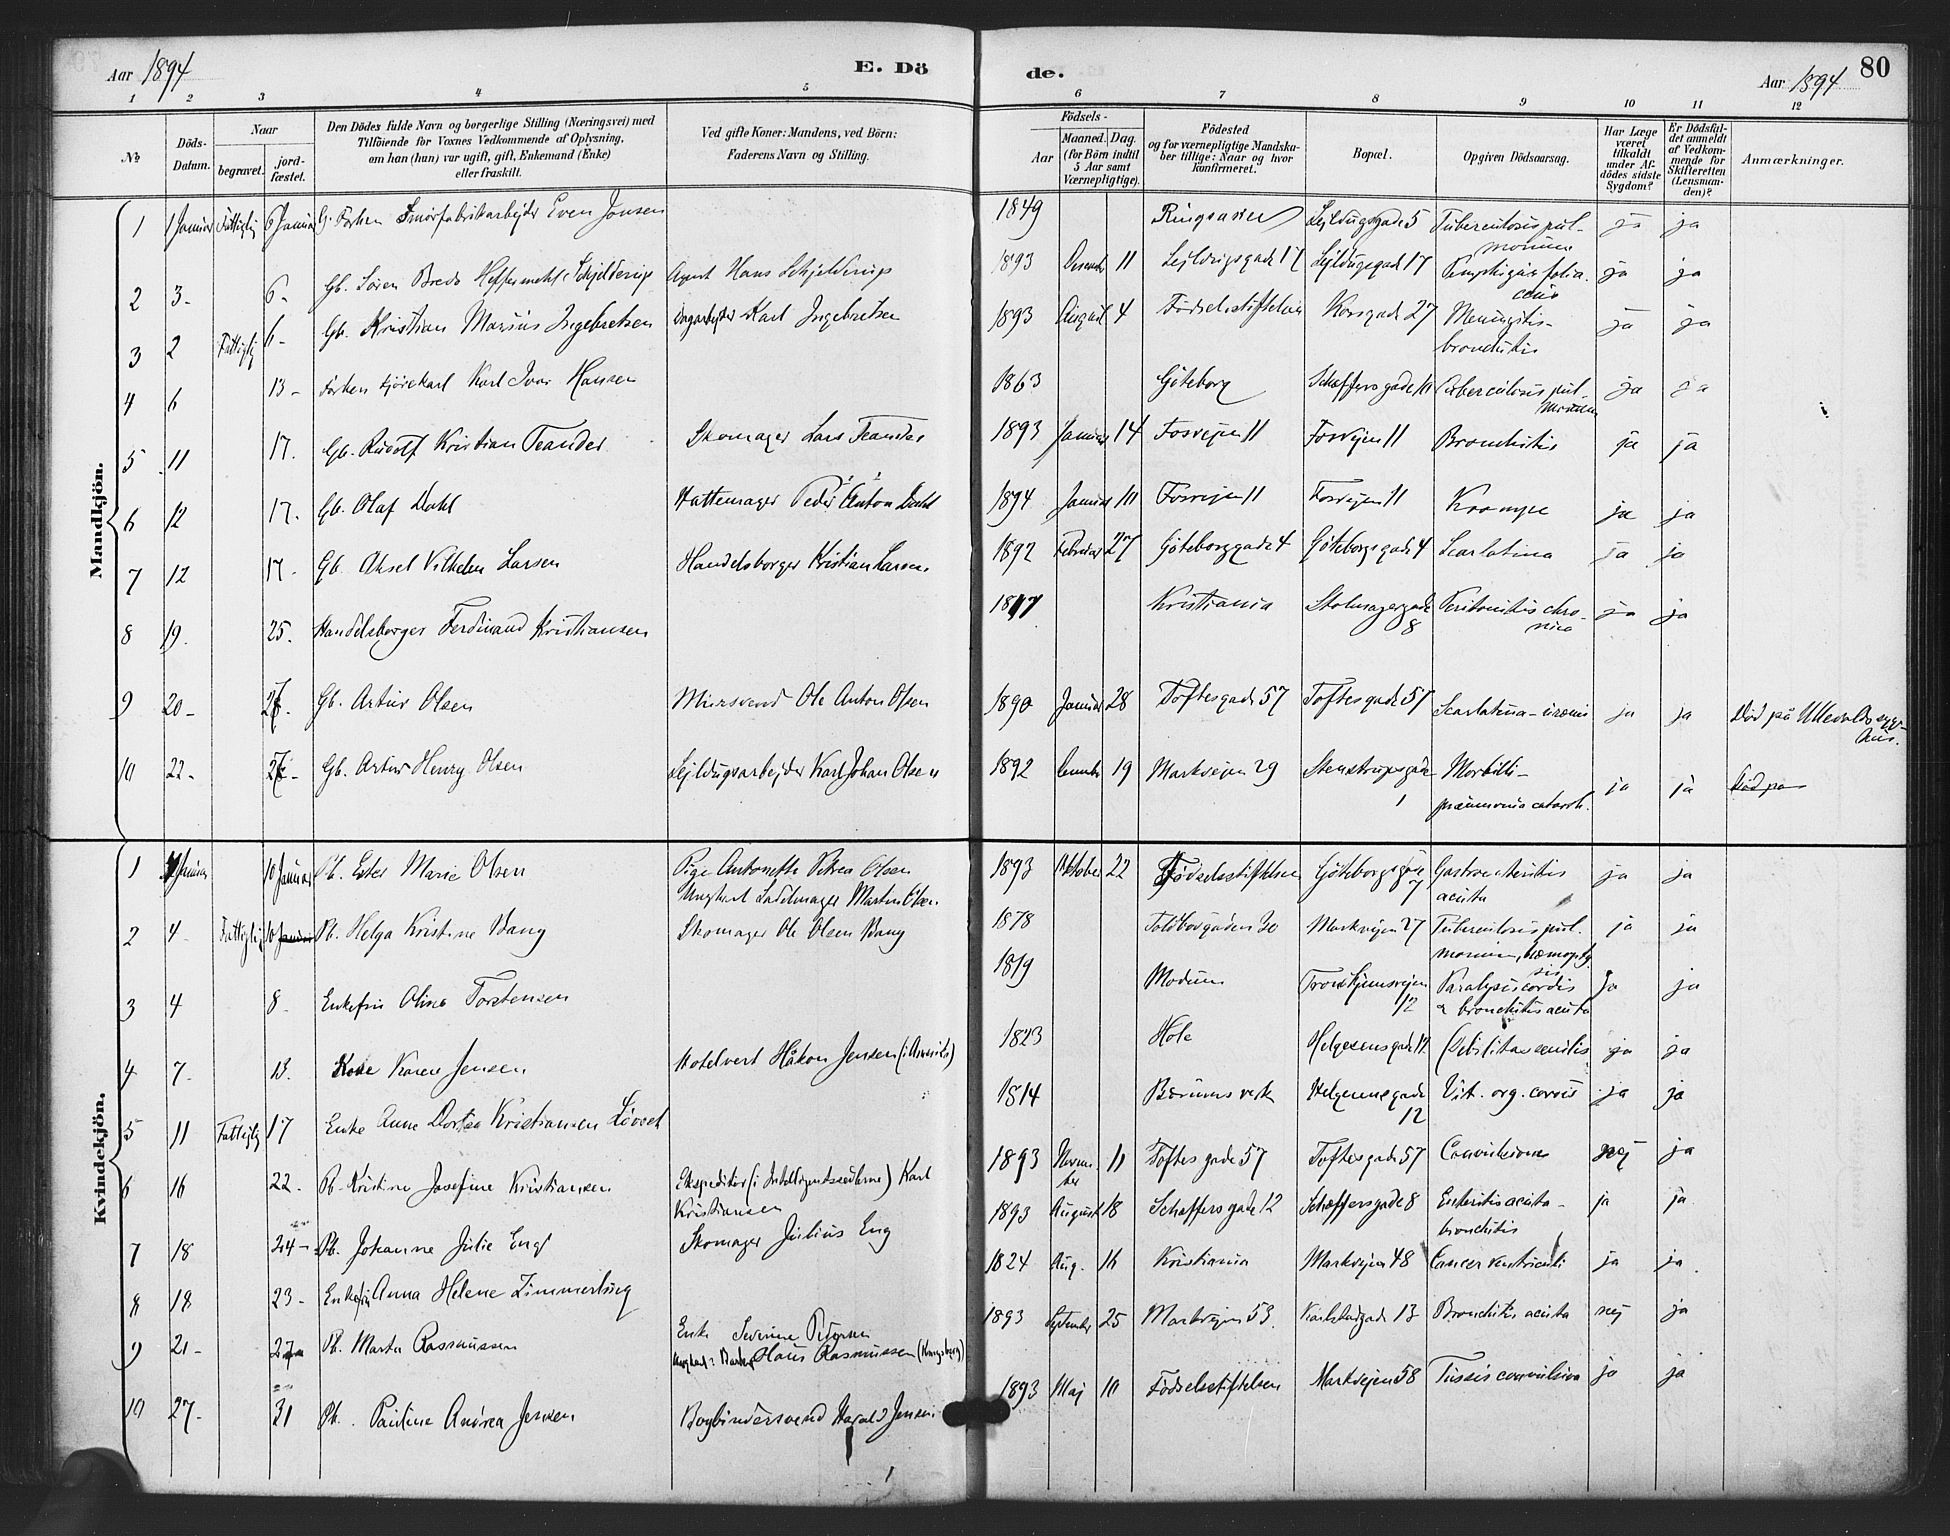 Aar 1894
E. Dö
de.
Aar 1894
80
1 2 3 4 5
6 7 8 9 10 11 12
№
Döds-Datum.
Naar
begravet.
jord-fæstet.
Den Dödes fulde Navn og borgerlige Stilling (Næringsvei) med
Tilföiende for Voxnes Vedkommende af Oplysning,
om han (hun) var ugift, gift, Enkemand (Enke)
eller fraskilt.
Ved gifte Koner: Mandens, ved Börn:
Faderens Navn og Stilling.
Födsels-
Aar
Maaned. Dag.
(for Börn indtil
5 Aar samt
Værnepligtige).
Födested
og for værnepligtige Mandska-
ber tillige: Naar og hvor
konfirmeret.
Bopæl.
Opgiven Dödsaarsag.
Har Læge
været
tilkaldt
under Af-
dödes sidste
Sygdom?
Er Dödsfal-
det anmeldt
af Vedkom-
mende for
Skifteretten
(Lensman-
den)?
Anmærkninger.
Mandkjön.
1 1 Januar Fattiglig 6 Januar Smörfabrikarbejder Even Jonsen 1849 Ringsaker Sejldugsgade 5 Tuberculosis pul-
monum ja ja
2 3- 6- Gb. Sören Bredo Schjelderup Agent Hans Schjelderup 1893 Decemb 11 Sejldugsgade 17 Sejldugsgade 17 Pemphigus folia-
ceus ja ja
3 2 Fattiglig 6- Gb. Kristian Marius Ingebretsen Dagarbejder Karl Ingebretsen 1893 August 4 Födselsstiftelsen Korsgade 27 Meningitis-
bronchitis ja ja
4 6 13- Kjörekarl Karl Ivar Hansen 1863 Göteborg Schæffersgade 10 Tuberculosis pul-
monum ja ja
5 11 17. Gb. Rudolf Kristian Teander Skomager Lars Teander 1893 Januar 14 Fosvejen 11 Fosvejen 11 Bronchitis ja ja
6 12 17. Gb. Olaf Dahl Hattemager Peder Anton Dahl 1894 Januar 10 Fosvejen 11 Fosvejen 11 Krampe ja ja
7 12 17- Gb. Aksel Vilhelm Larsen Handelsborger Kristian Larsen 1892 Februar 27 Göteborggade 4 Göteborgsgade 4 Scarlatina ja ja
8 19. 25. Handelsborger Ferdinand Kristiansen 1817 Kristiania Stolmagergade
8 Peritonitis chro-
nica ja ja
9 20- 27. Gb. Artur Olsen Mursvend Ole Anton Olsen 1890 Januar 28 Toftesgade 57 Toftesgade 57 Scarlatina-uræmi ja ja Död på Ullevolds syge-
hus.
10 22- 27- Gb. Artur Henry Olsen Sejldugsarbejder Karl Johan Olsen 1892 19 Markvejen 29 Stenstrupsgade
1 Morbilli-
pneumonia catarrh. ja ja Död på
Kvindekjön.
1 Januar 10 Januar Pb. Ester Marie Olsen Pige Antonette Petrea Olsen
Ungkarl Sadelmager Martin Olsen 1893 Oktober 22 Födselsstiftelsen Göteborgsgade
7 Gastroenteritis
acuta ja ja
2 4- Fattiglig 10 Januar Pb. Helga Kristine Bang Skomager Ole Olsen Bang 1878 Toldbodgaden 30 Markvejen 27 Tuberculosis pul-
monum, hæmopty-
sis ja ja
3 4 8- Enkefru Oline Torstensen 1819 Modum Trondhjemsvejen
12 Paralysis cordis
& bronchitis acuta ja ja
4 7- 13. Kone Karen Jensen Hotelvert Håkon Jensen (i Amerika) 1823 Hole Helgesensgade 12 Debilitas senilis ja ja
5 11 Fattiglig 17 Enke Anne Dortea Kristiansen Lövset 1814 Bærums verk Helgesensgade
12 Vit. org. cordis ja ja
6 16 22- Pb. Kristine Josefine Kristiansen Ekspeditör (i Intelligentssedlerne) Karl
Kristiansen 1893 Novem-
ber 11 Toftesgade 57 Toftesgade 57 Convulsiones nej ja
7 18 24- Pb. Johanne Julie Eng Skomager Julius Eng 1893 August 18 Schæffersgade 12 Schæffersgade 8 Enteritis acuta-
bronchitis ja ja
8 18 23- Enkefru Anna Helene Zimmerlung 1824 Aug. 16 Kristiania Markvejen 48 Cancer ventriculi ja ja
9 21- 27 Pb. Marta Rasmussen Enke Severine Pedersen
Hans Rasmussen (Kongsberg) 1893 September 25 Markvejen 53. Karlstadgade 13 Bronchitis acuta nej ja
10 27- 31 Pb. Pauline Andrea Jensen Bogbindersvend Harald Jensen 1893 Maj 10 Födselsstiftelsen Markvejen 58 Tussis convulsiva ja ja